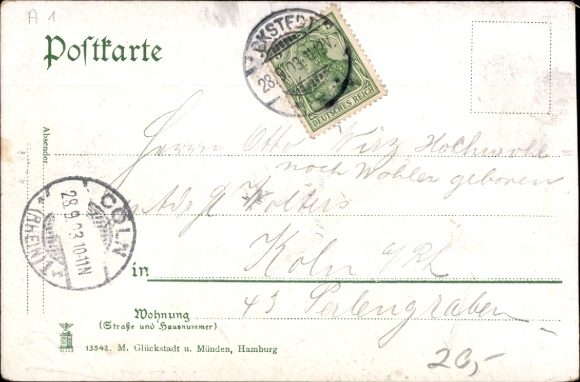 A 1
Postkarte
28.9.03.11-12V.
DEUTSCHES REICH
Absender:
Herrn Otto Wirz Hochwohl-
noch Wohler geboren
Adr. H. Wolters
CÖLN
28.9.03.10-11N
(RHEIN) 1
Köln a/Rh
in
43 Perlengraben
Wohnung
(Straße und Hausnummer)
13542. M. Glückstadt u. Münden, Hamburg
20,-